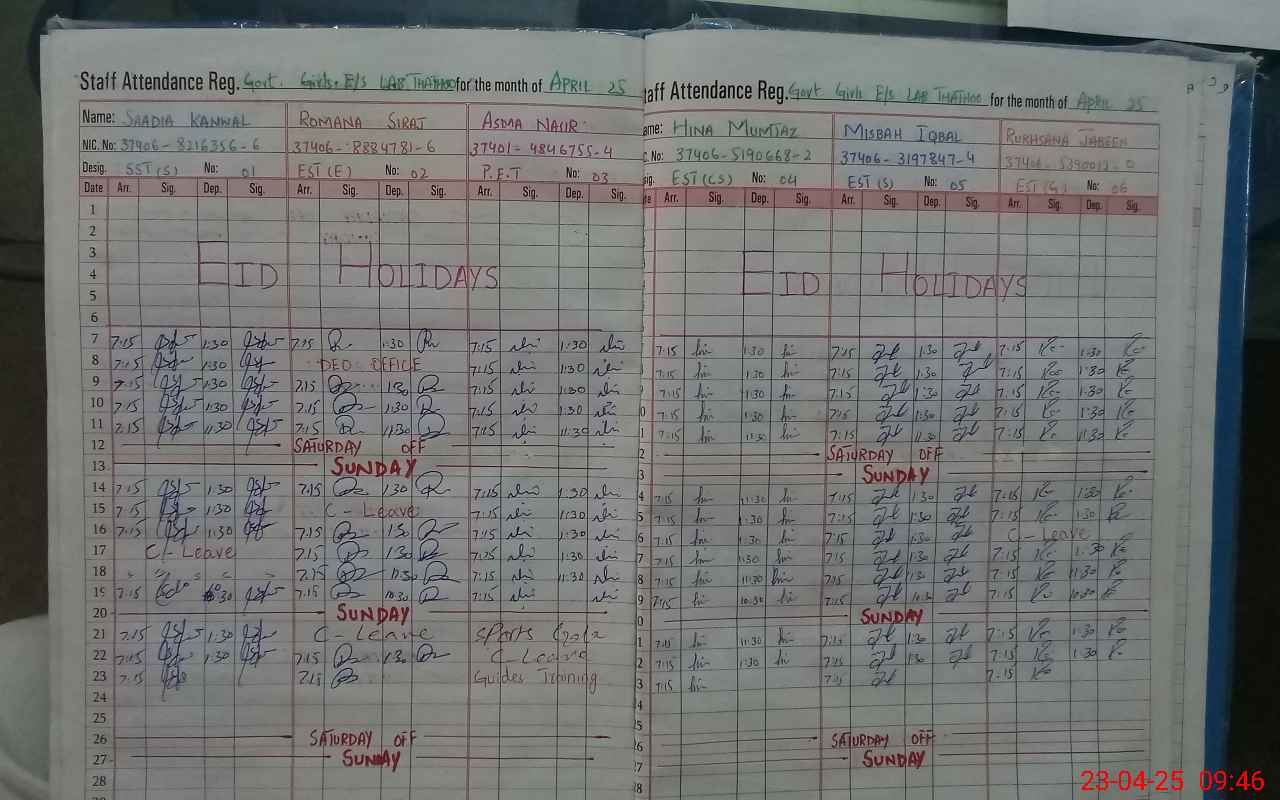 Staff Attendance Reg. Govt. Girls. E/S LAB THATHOO for the month of APRIL 25
Name: SAADIA KANWAL ROMANA SIRAJ ASMA NASIR
NIC. No: 37406-8216356-6 37406-8884781-6 37401-4846755-4
Desig. SST(S) No: 01 EST(E) No: 02 P.E.T No: 03
Date Arr. Sig. Dep. Sig. Arr. Sig. Dep. Sig. Arr. Sig. Dep. Sig.
1
2
3
4 EID HOLIDAYS
5
6
7 7:15 1:30 7:15 1:30 7:15 1:30
8 7:15 1:30 DEO OFFICE 7:15 1:30
9 7:15 1:30 7:15 1:30 7:15 1:30
10 7:15 1:30 7:15 1:30 7:15 1:30
11 7:15 11:30 7:15 11:30 7:15 11:30
12 SATURDAY OFF
13 SUNDAY
14 7:15 1:30 7:15 1:30 7:15 1:30
15 7:15 1:30 C-Leave 7:15 1:30
16 7:15 1:30 7:15 1:30 7:15 1:30
17 C-Leave 7:15 1:30 7:15 1:30
18 7:15 11:30 7:15 11:30
19 7:15 7:15 10:30 7:15
20 SUNDAY
21 7:15 1:30 C-Leave Sports Gala
22 7:15 1:30 7:15 1:30 C-Leave
23 7:15 7:15 Guides Training
24
25
26 SATURDAY OFF
27 SUNDAY
28
taff Attendance Reg. Govt Girls E/S LAB THATHOO for the month of APRIL 25
ame: HINA MUMTAZ MISBAH IQBAL RUKHSANA JABEEN
C. No: 37406-5190668-2 37406-3197847-4
sig. EST(CS) No: 04 EST(S) No: 05 No: 06
te Arr. Sig. Dep. Sig. Arr. Sig. Dep. Sig. Arr. Sig. Dep. Sig.
EID HOLIDAYS
7:15 1:30 7:15 1:30 7:15 1:30
7:15 1:30 7:15 1:30 7:15 1:30
7:15 1:30 7:15 1:30 7:15 1:30
0 7:15 1:30 7:15 1:30 7:15 1:30
1 7:15 11:30 7:15 11:30 7:15 11:30
2 SATURDAY OFF
3 SUNDAY
4 7:15 11:30 7:15 1:30 7:15 1:30
5 7:15 1:30 7:15 1:30 7:15 1:30
6 7:15 1:30 7:15 1:30 C-Leave
7 7:15 1:30 7:15 1:30 7:15 1:30
8 7:15 11:30 7:15 11:30 7:15 11:30
9 7:15 10:30 7:15 10:30 7:15 10:30
0 SUNDAY
1 7:15 11:30 7:15 1:30 7:15 1:30
2 7:15 1:30 7:15 1:30 7:15 1:30
3 7:15 7:15 7:15
4
5
6 SATURDAY OFF
7 SUNDAY
8
23-04-25 09:46